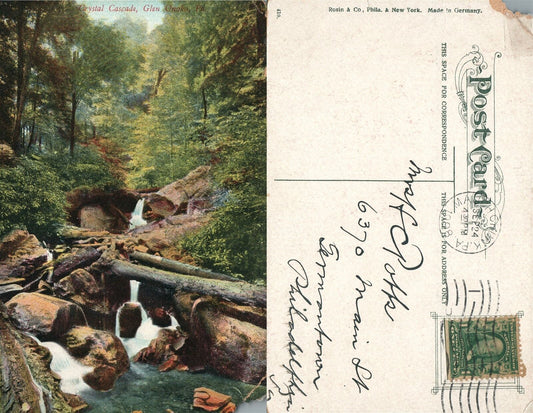 Crystal Cascade, Glen Onoko, Pa.
424
Rosin & Co., Phila. & New York. Made in Germany.
Post Card
THIS SPACE FOR CORRESPONDENCE
THIS SPACE IS FOR ADDRESS ONLY
Mrs H Potts
6370 Main St
Germantown
Philadelphia